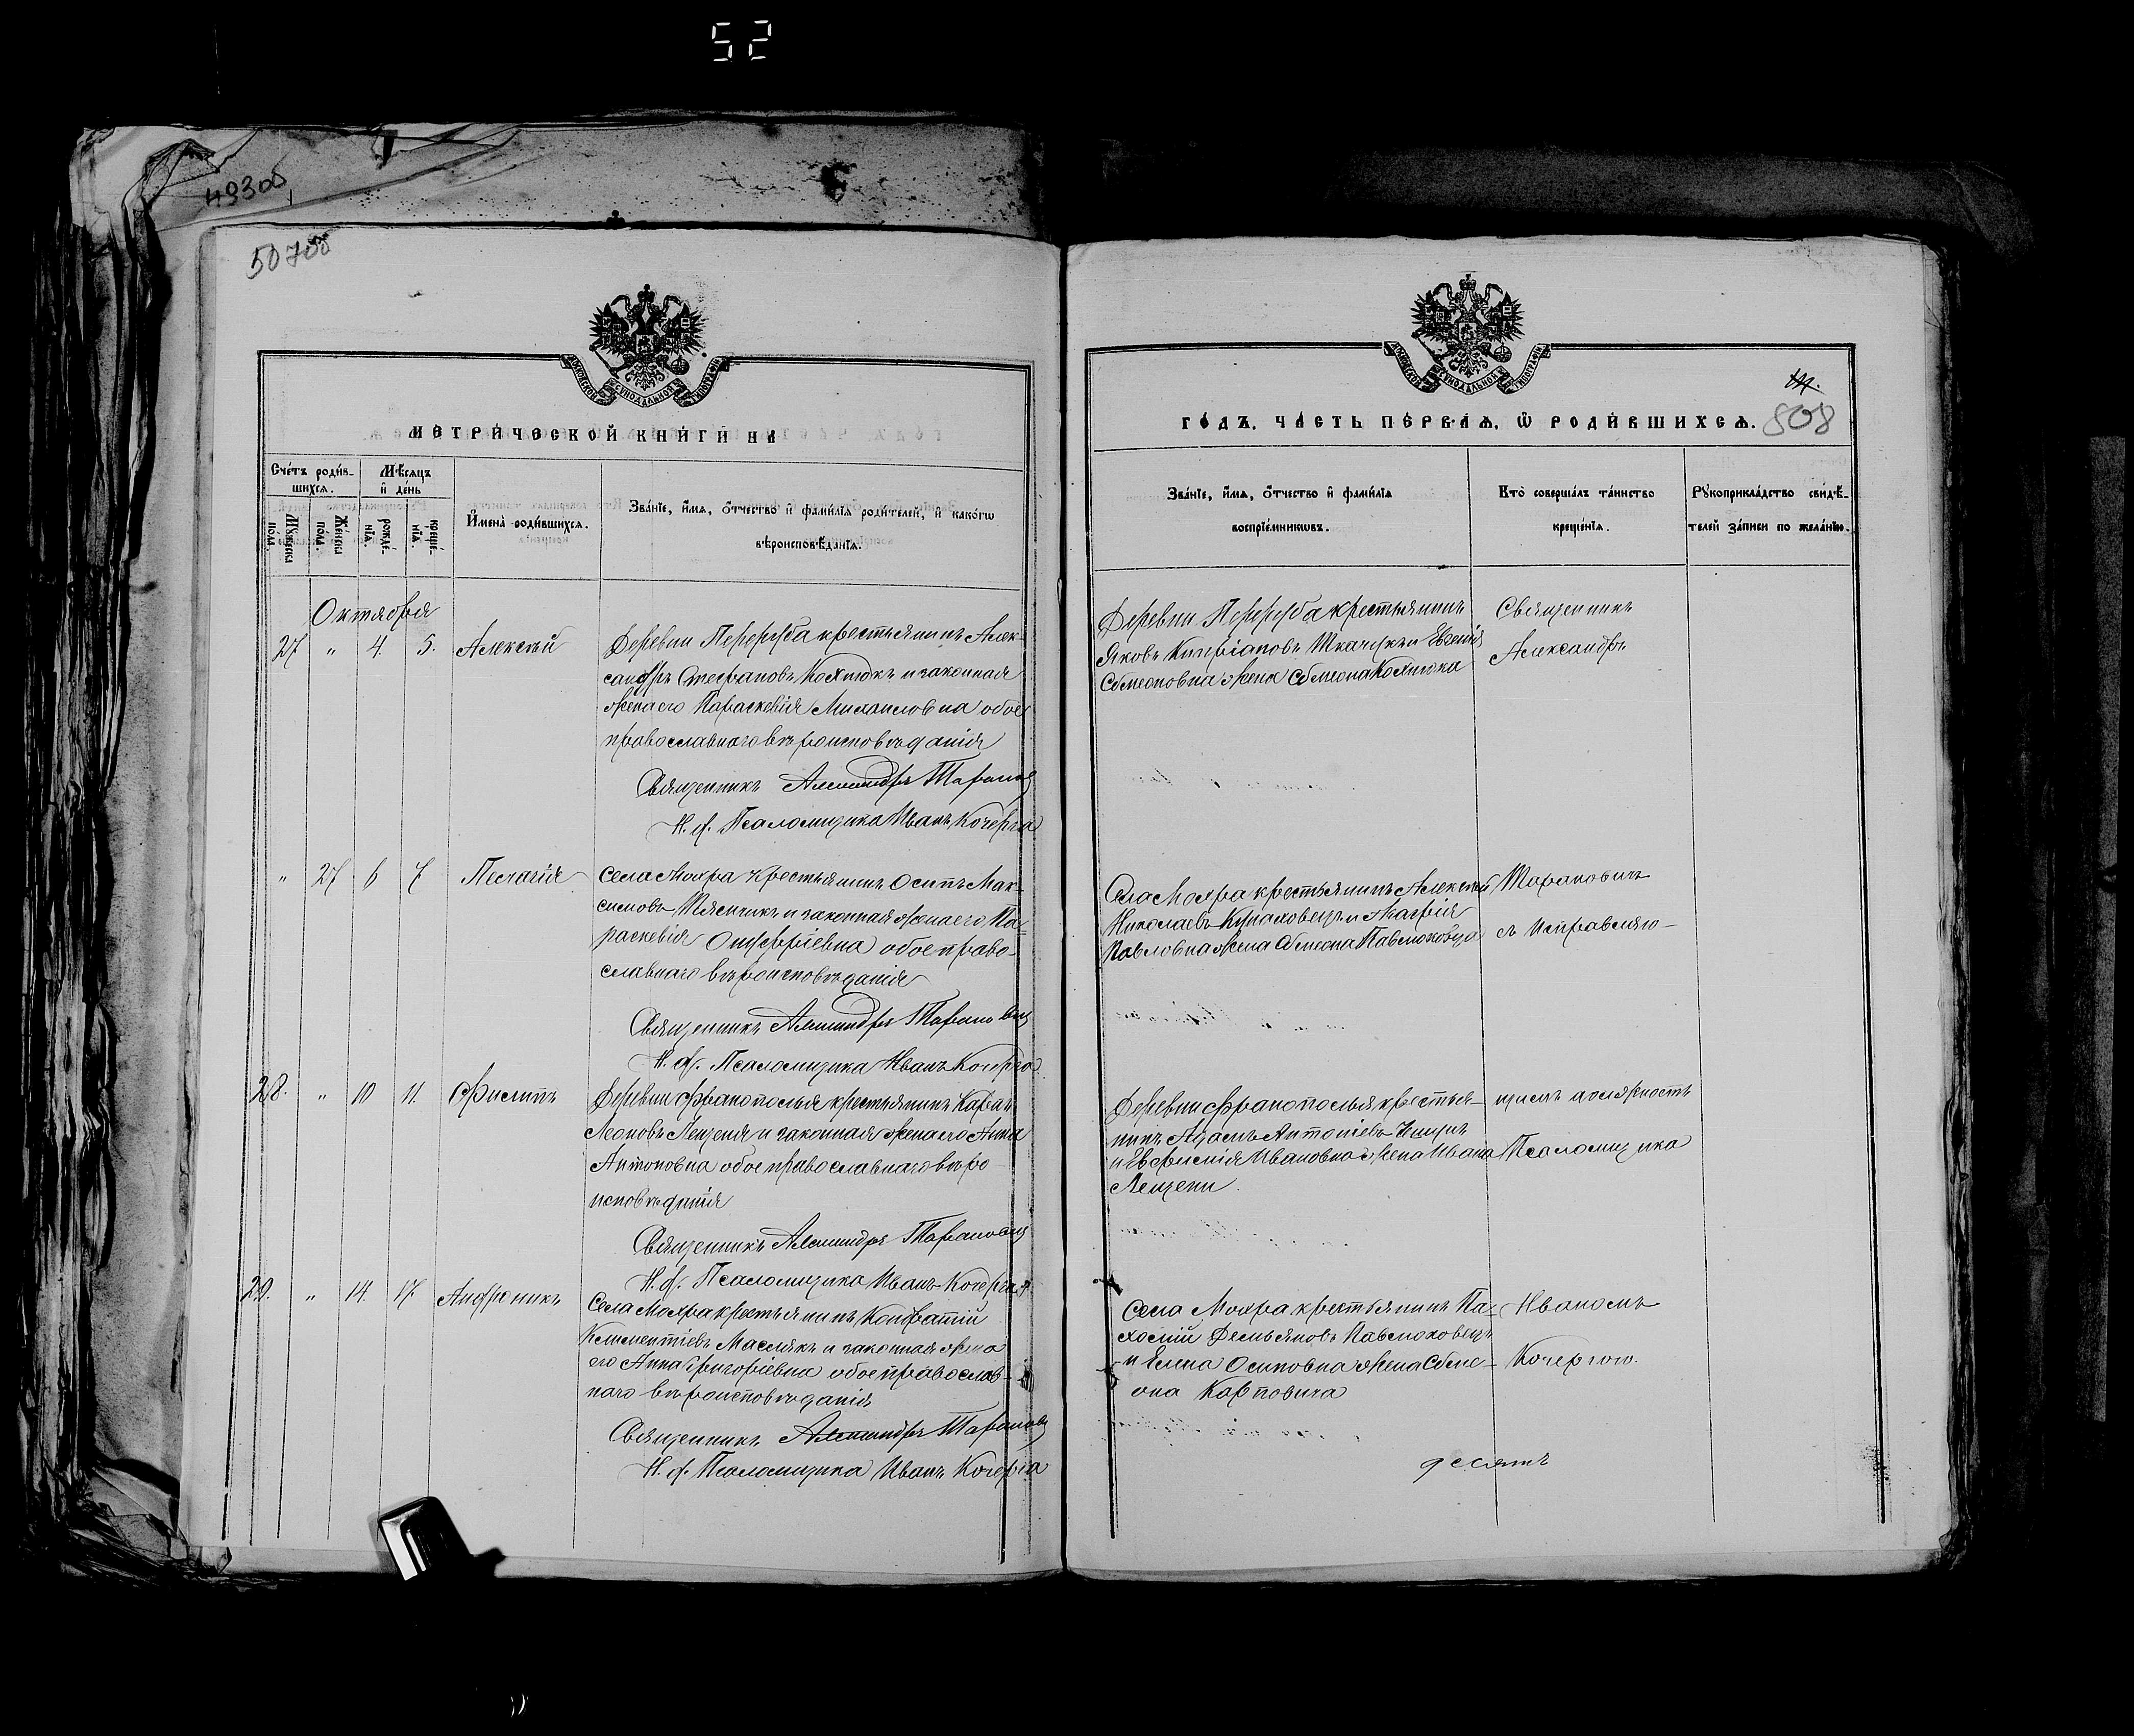 52
49300
50700
МОСКОВСКОЙ СѴНОДАЛЬНОЙ ТИПОГРАФІИ
МЕТРИ́ЧЕСКОЙ КНИ́ГИ НА
Сче́тъ роди́в-
шихся.
Мѣ́сяцъ
и҆ де́нь
Мꙋ́жеска
по́ла.
Же́нска
по́ла.
рожде́-
нїѧ.
креще́-
нїѧ.
И҆мена̀ роди́вшихсѧ.
Зва́нїе, и҆́мѧ, ѻ҆́тчество и҆ фами́лїѧ роди́телей, и҆ како́гѡ
вѣроисповѣ́данїѧ.
Октября
27 " 4. 5. Алексѣй
Деревни Переруба крестьянинъ Алек-
сандръ Стефановъ Кохнюкъ и законная
жена его Параскевія Михаиловна обое
православнаго вѣроисповѣданія
Священникъ Александръ Таранов
И. д. Псаломщика Иванъ Кочерга
" 27 6 7 Пелагія
Села Мохра крестьянинъ Осипъ Мак-
симовъ и законная жена его Па-
раскевія Онуфріевна обое право-
славнаго вѣроисповѣданія
Священникъ Александръ Таранович
И. д. Псаломщика Иванъ Кочерга
28. " 10 11. Филиппъ
Деревни Франополья крестьянинъ Карпъ
Леоновъ Лещеня и законная жена его Анна
Антоновна обое православнаго вѣро-
исповѣданія
Священникъ Александръ Таранович
И. д. Псаломщика Иванъ Кочерга
29. " 14. 17. Андроникъ
Села Мохра крестьянинъ Кондратій
Климентіевъ Маслякъ и законная жена
его Анна Григоріевна обое православ-
наго вѣроисповѣданія
Священникъ Александръ Таранов
И. д. Псаломщика Иванъ Кочерга
МОСКОВСКОЙ СѴНОДАЛЬНОЙ ТИПОГРАФІИ
ГО́ДЪ. ЧА́СТЬ ПЕ́РВАѦ, Ѡ҆ РОДИ́ВШИХСѦ.
808
Зва́нїе, и҆́мѧ, ѻ҆́тчество и҆ фами́лїѧ
воспрїе́мникѡвъ.
Кто̀ соверша́лъ та́инство
креще́нїѧ.
Рꙋкоприкла́дство свидѣ́-
телей за́писи по жела́нїю.
Деревни Переруба крестьянинъ
Яковъ Кипріановъ Ткачукъ и Евгенія
Сѵмеоновна жена Сѵмеона Кохнюка
Священникъ
Александръ
Села Мохра крестьянинъ Алексѣй
Николаевъ Кунаховецъ и Агафія
Павловна жена Сѵмеона Павлюковца
Тарановичъ
съ исправляю-
Деревни Франополья крестья-
нинъ Адамъ Антоніевъ
и Евфимія Ивановна жена Ивана
Лещени.
щимъ должность
Псаломщика
Села Мохра крестьянинъ Па-
хомій Демьяновъ Павлюковецъ
и Елена Осиповна жена Сѵме-
она Карповича
Иваномъ
Кочергою.
десять